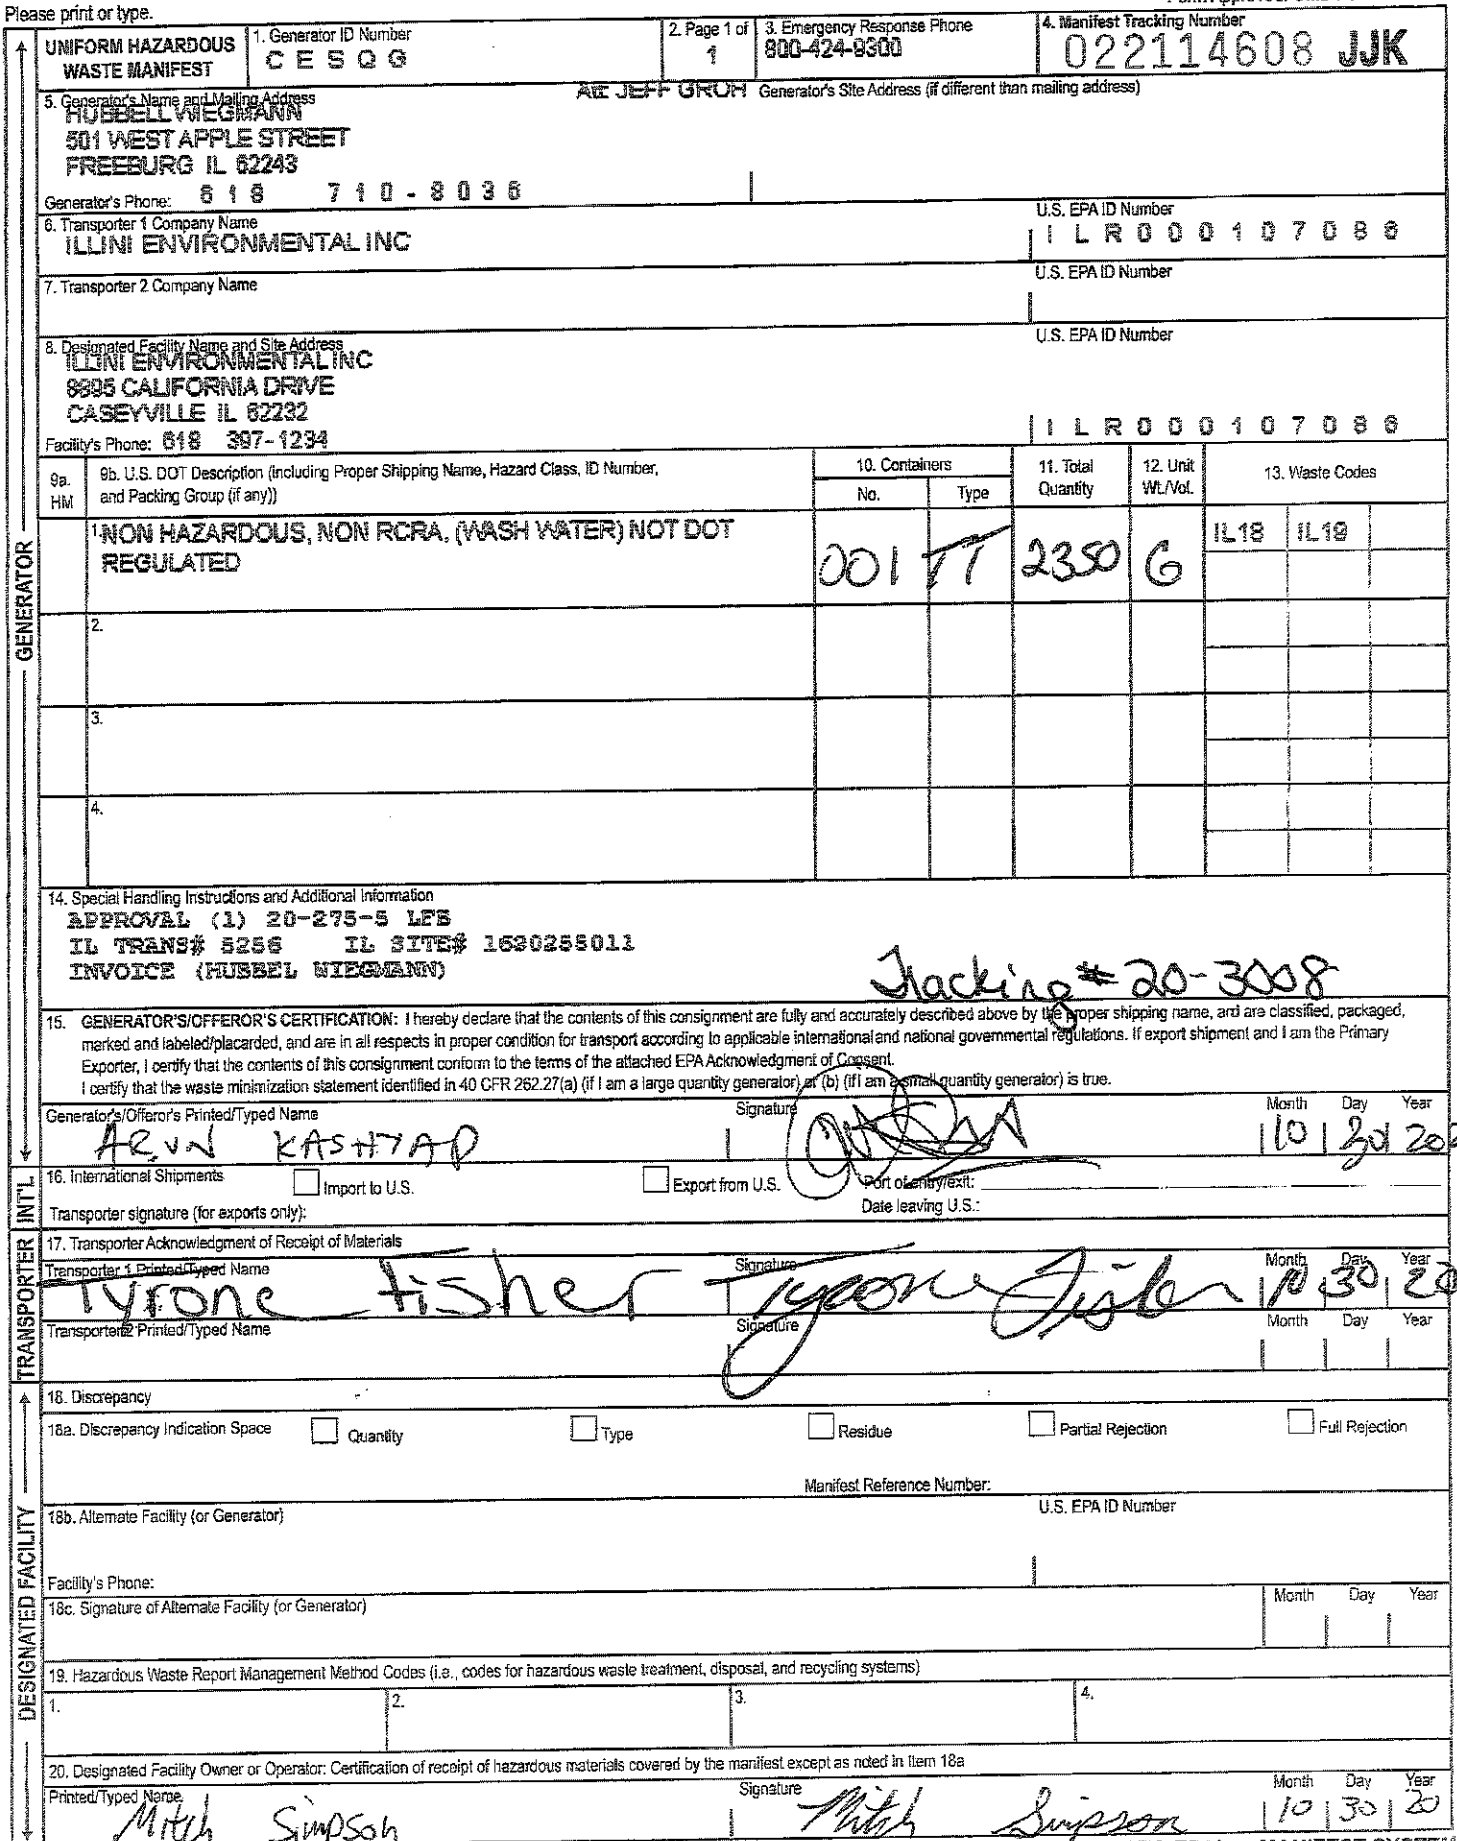 Please print or type.
UNIFORM HAZARDOUS WASTE MANIFEST
1. Generator ID Number
CESQG
2. Page 1 of
1
3. Emergency Response Phone
800-424-9300
4. Manifest Tracking Number
022114608 JJK
5. Generator's Name and Mailing Address
HUBBELL WIEGMANN
501 WEST APPLE STREET
FREEBURG IL 62243
Generator's Phone: 618 710-8036
Att: JEFF GROH
Generator's Site Address (if different than mailing address)
6. Transporter 1 Company Name
ILLINI ENVIRONMENTAL INC
U.S. EPA ID Number
ILR000107086
7. Transporter 2 Company Name
U.S. EPA ID Number
8. Designated Facility Name and Site Address
ILLINI ENVIRONMENTAL INC
8895 CALIFORNIA DRIVE
CASEYVILLE IL 62232
Facility's Phone: 618 397-1234
U.S. EPA ID Number
ILR000107086
9a. HM
9b. U.S. DOT Description (including Proper Shipping Name, Hazard Class, ID Number,
and Packing Group (if any))
10. Containers
No.
Type
11. Total Quantity
12. Unit Wt./Vol.
13. Waste Codes
1. NON HAZARDOUS, NON RCRA, (WASH WATER) NOT DOT
REGULATED
001 TT 2350 G IL18 IL19
2.
3.
4.
GENERATOR
14. Special Handling Instructions and Additional Information
APPROVAL (1) 20-275-5 LFB
IL TRANS# 5256 IL SITE# 1630255011
INVOICE (HUBBEL WIEGMANN)
Tracking # 20-3008
15. GENERATOR'S/OFFEROR'S CERTIFICATION: I hereby declare that the contents of this consignment are fully and accurately described above by the proper shipping name, and are classified, packaged,
marked and labeled/placarded, and are in all respects in proper condition for transport according to applicable international and national governmental regulations. If export shipment and I am the Primary
Exporter, I certify that the contents of this consignment conform to the terms of the attached EPA Acknowledgment of Consent.
I certify that the waste minimization statement identified in 40 CFR 262.27(a) (if I am a large quantity generator) or (b) (if I am a small quantity generator) is true.
Generator's/Offeror's Printed/Typed Name
ARUN KASHYAP
Signature
Month Day Year
10 30 202
INT'L
16. International Shipments
Import to U.S.
Export from U.S.
Port of entry/exit:
Transporter signature (for exports only):
Date leaving U.S.:
TRANSPORTER
17. Transporter Acknowledgment of Receipt of Materials
Transporter 1 Printed/Typed Name
Tyrone Fisher
Signature
Tyrone Fisher
Month Day Year
10 30 20
Transporter 2 Printed/Typed Name
Signature
Month Day Year
DESIGNATED FACILITY
18. Discrepancy
18a. Discrepancy Indication Space
Quantity
Type
Residue
Partial Rejection
Full Rejection
Manifest Reference Number:
18b. Alternate Facility (or Generator)
U.S. EPA ID Number
Facility's Phone:
18c. Signature of Alternate Facility (or Generator)
Month Day Year
19. Hazardous Waste Report Management Method Codes (i.e., codes for hazardous waste treatment, disposal, and recycling systems)
1.
2.
3.
4.
20. Designated Facility Owner or Operator: Certification of receipt of hazardous materials covered by the manifest except as noted in Item 18a
Printed/Typed Name
Mitch Simpson
Signature
Mitch Simpson
Month Day Year
10 30 20